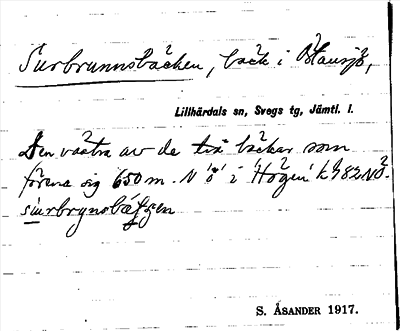 Surbrunnsbäcken, bäck iÖlansjö,
Lillhärdals sn, Svegs tg, Jämtl. l.
Den västra av de två bäckar som
förena sig 650 m. N "ö" i "Högen" k 982 NÖ.
S. ÅSANDER 1917.